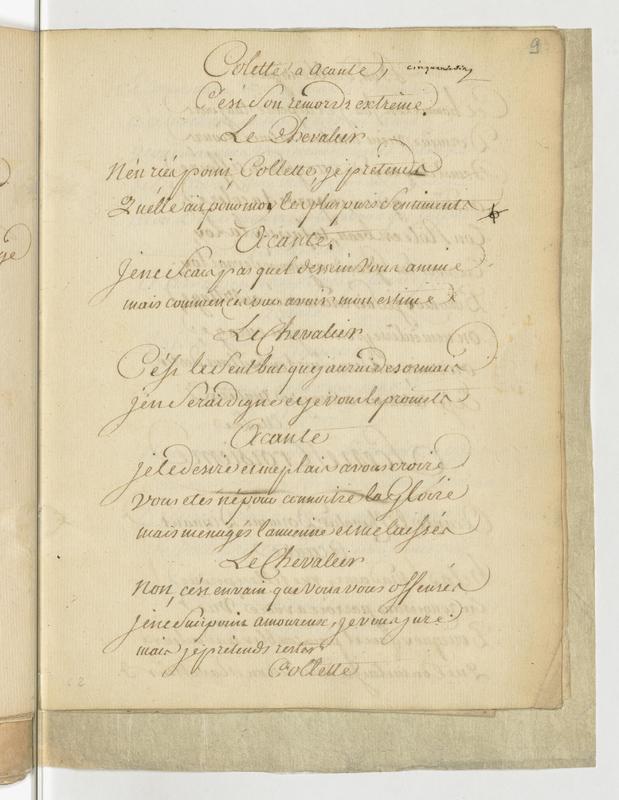 9
Colette a acante,
C'est son remords extreme.
Le Chevalier
N'en riés point Collette, je prétends
Qu'elle ait pour moy les plus purs sentiments
Acante.
Je ne scais pas quel dessein vous anime
mais commencés par avoir mon estime
Le Chevalier
C'est le seul but que j'aurai desormais
j'en serai digne et je vous le promets
Acante
je le desire et me plais a vous croire
vous etes né pour connoitre la Gloire
mais menagés la mienne et me laissés
Le Chevalier
Non, c'est en vain que vous vous offensés
je ne suis point amoureux, je vous jure
mais je prétends rester
Collette